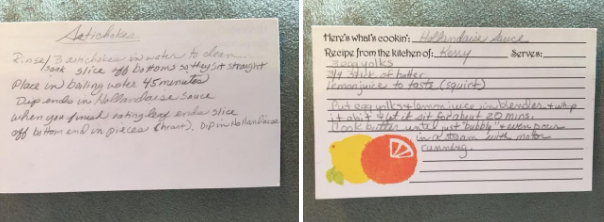 Artichokes
Rinse/ 3 artichokes in water to clean
soak slice off bottoms so they sit straight
Place in boiling water 45 minutes
Dip ends in Hollandaise Sauce
when you finish eating leaf ends slice
off bottom end in pieces (heart). Dip in Hollandaise
Here's what's cookin': Hollandaise Sauce
Recipe from the kitchen of: Kerry Serves:
3 egg yolks
3/4 stick of butter
lemon juice to taste (squirt)
Put egg yolks + lemon juice in blender + whip
it a bit + let it sit for about 20 mins.
Cook butter until just "bubbly" + even pour
in a stream with motor
running.